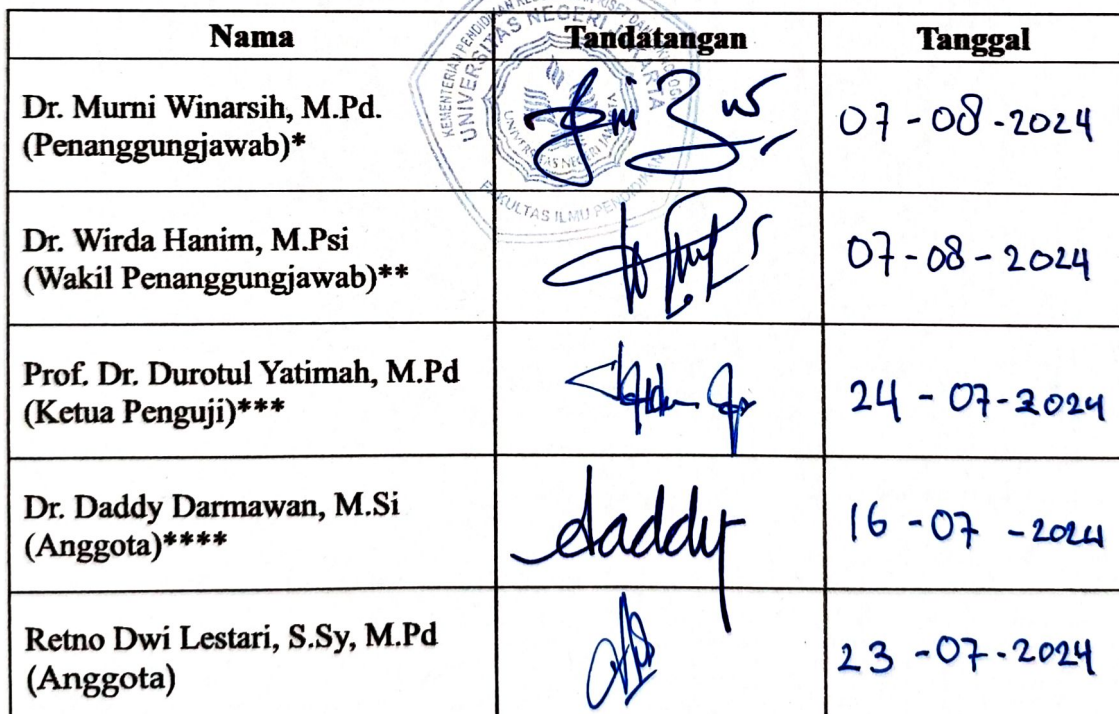 Nama Tandatangan Tanggal
Dr. Murni Winarsih, M.Pd.
(Penanggungjawab)*
07-08-2024
Dr. Wirda Hanim, M.Psi
(Wakil Penanggungjawab)**
07-08-2024
Prof. Dr. Durotul Yatimah, M.Pd
(Ketua Penguji)***
24-07-2024
Dr. Daddy Darmawan, M.Si
(Anggota)****
daddy
16-07-2024
Retno Dwi Lestari, S.Sy, M.Pd
(Anggota)
23-07-2024
UNIVERSITAS NEGERI JAKARTA
FAKULTAS ILMU PENDIDIKAN